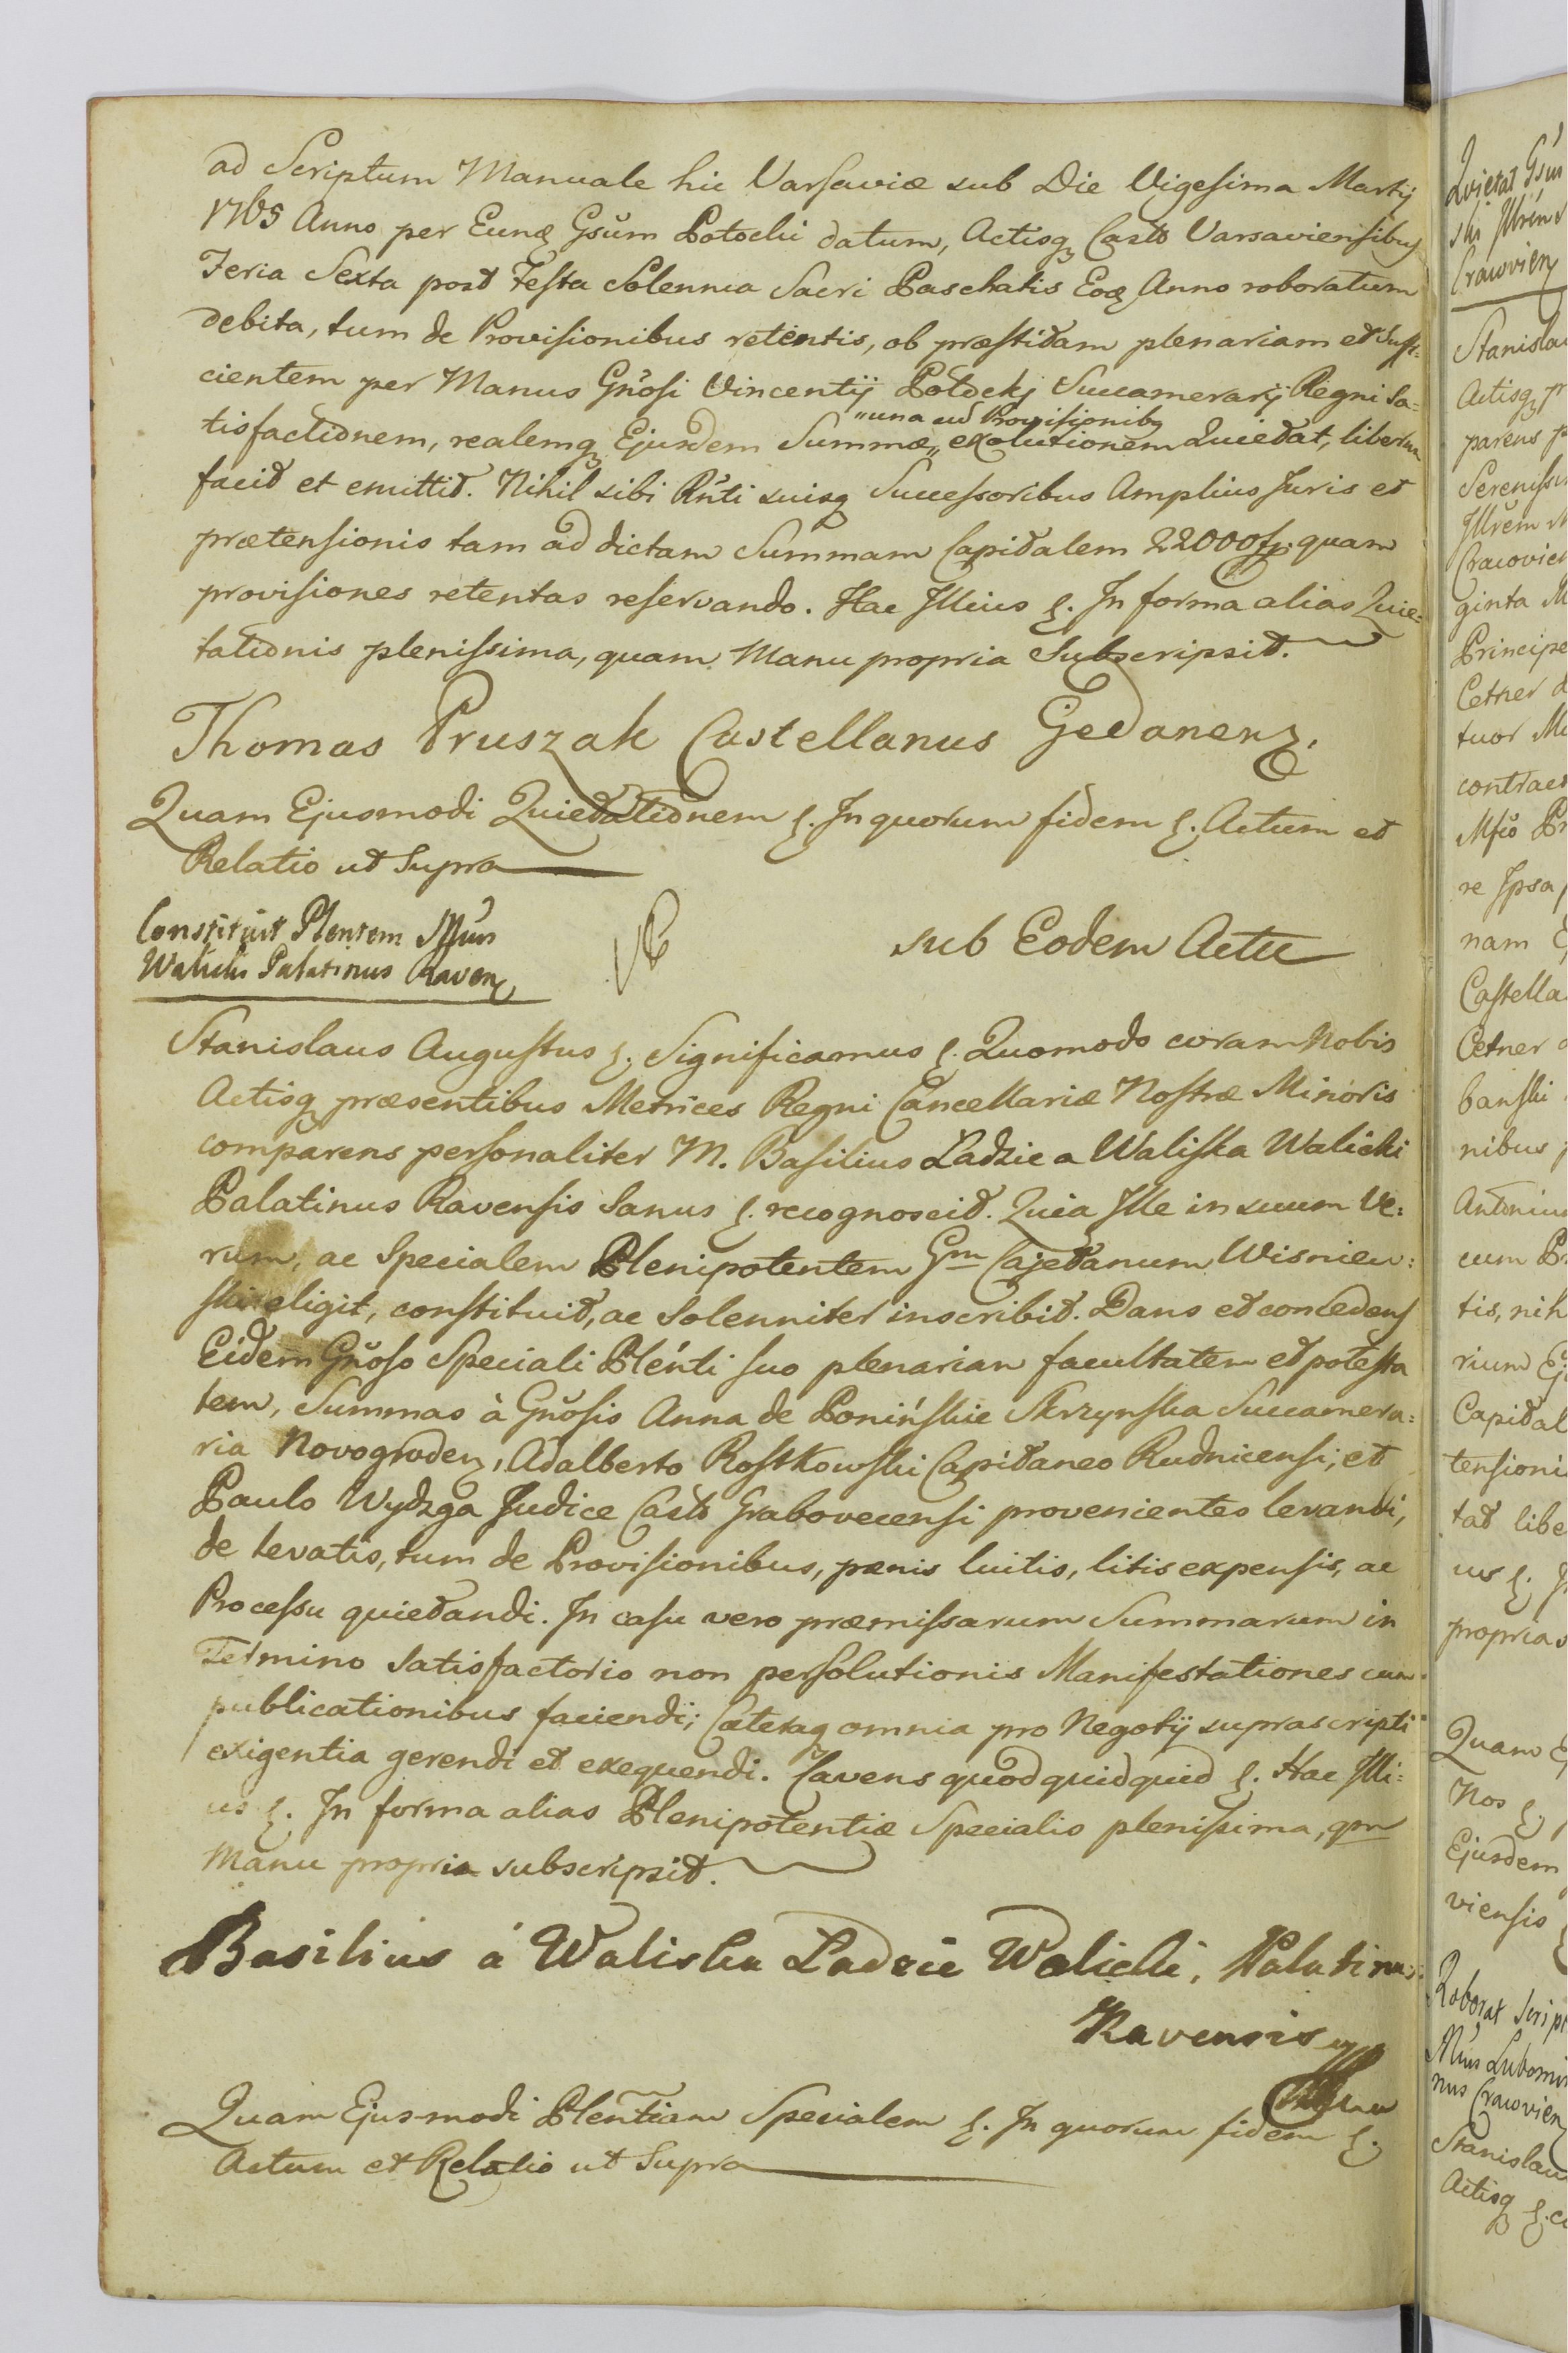 ad Scriptum Manuale hic Varsaviæ sub Die Vigesima Martij
1765 Anno per Eunq Gsũm Potocki datum, Actisq Castr Varsaviensibus
Feria Sexta post Festa Solennia Sacri Paschatis Eoq Anno roboratum
debita, tum de Provisionibus retentis, ob præstitam plenariam et suffi=
cientem per Manus Gñosi Vincentij Potocki Succamerarij Regni Sa=
tisfactionem, realemq Ejusdem Summæ „ exolutionem Quietat, liberum
„una cũ Provisionibq
facit et emittit. Nihil sibi Rñti suisq Successoribus Amplius Juris et
prætensionis tam ad dictam Summam Capitalem 22000 fp. quam
provisiones retentas reservando. Hac Illius &. In forma alias Quie=
tationis plenissima, quam Manu propria Subscripsit.
Thomas Pruszak Castellanus Gedanenz.
Quam Ejusmodi Quietationem &. In quorum fidem &. Actum et
Relatio ut Supra
Constituit Plentem
Walicki Palatinus Ravenz
sub Eodem Actu
Stanislaus Augustus &. Significamus &. Quomodo coram Nobis
Actisq præsentibus Metrices Regni Cancellariæ Nostræ Minoris
comparens personaliter M. Basilius Ladzic a Waliska Walicki
Palatinus Ravensis Sanus &. recognoscit. Quia Ille in suum Ve=
rum, ac Specialem Plenipotentem Gm Cajetanum Wisniew=
ski eligit, constituit, ac Solenniter inscribit. Dans et concedens
Eidem Gñoso Speciali Plénti suo plenariam facultatem et potesta
tem, Summas à Gñosis Anna de Ponińskie Skrzynska Succamera=
ria Novogrodenz, Adalberto Rostkowski Capitaneo Rudnicensi, et
Paulo Wydzga Judice Castr Grabovecensi provenientes levandi,
de levatis, tum de Provisionibus, pænis luitis, litis expensis, ac
Processu quietandi. In casu vero præmissarum Summarum in
Termino satisfactorio non persolutionis Manifestationes cum
publicationibus faciendi; Cæteraq omnia pro Negotij suprascripti
exigentia gerendi et exequendi. Cavens quod quidquid &. Hac Illi=
us &. In forma alias Plenipotentiæ Specialis plenissima, qm
Manu propria subscripsit.
Basilius á Waliska Ladzic Walicki, Palatinus
Ravensis
Quam Ejusmodi Plentiam Specialem &. In quorum fidem &.
Actum et Relatio ut Supra
Quietat Gsũm
Crawvienz
Stanislau
Actisq pr
parens p
Serenissi
Cracovien
ginta M
Principe
Cetner d
tuor M
contract
re Ipsa
nam
Castella
Cetner
banski
nibus
Antonium
cum
tis, nih
rium Ej
Capital
tensioni
tat libe
us &.
propria s
Quam E
Nos &.
Ejusdem
viensis
Roborat Script
Lubomir
nus Crawvienz
Stanislau
Actisq &. co